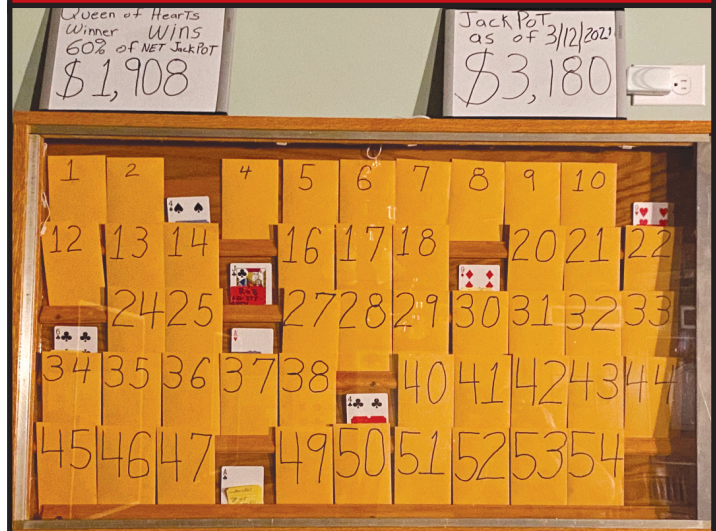 Queen of Hearts
Winner Wins
60% of NET JackPOT
$1,908
JackPOT
as of 3/12/2021
$3,180
1 2 4 5 6 7 8 9 10
12 13 14 16 17 18 20 21 22
24 25 27 28 29 30 31 32 33
34 35 36 37 38 40 41 42 43 44
45 46 47 49 50 51 52 53 54